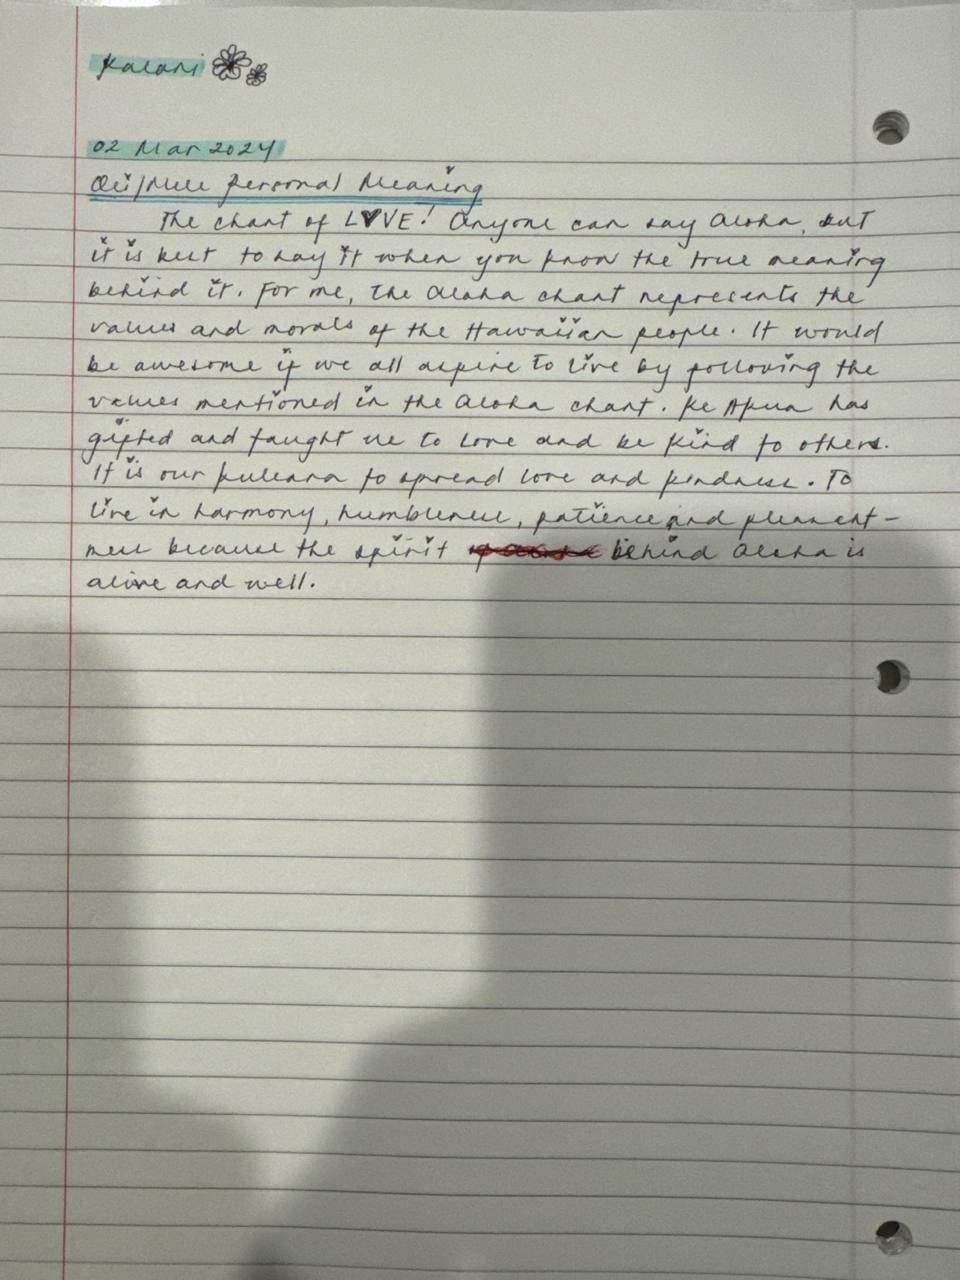 Kalani
02 Mar 2024
Oli/Mele Personal Meaning
The chant of LOVE! Anyone can say Aloha, but
it is best to say it when you know the true meaning
behind it. For me, the Aloha chant represents the
values and morals of the Hawaiian people. It would
be awesome if we all aspire to live by following the
values mentioned in the Aloha chant. Ke Akua has
gifted and taught us to love and be kind to others.
It is our kuleana to spread love and kindness. To
live in harmony, humbleness, patience and pleasant-
ness because the spirit behind Aloha is
alive and well.